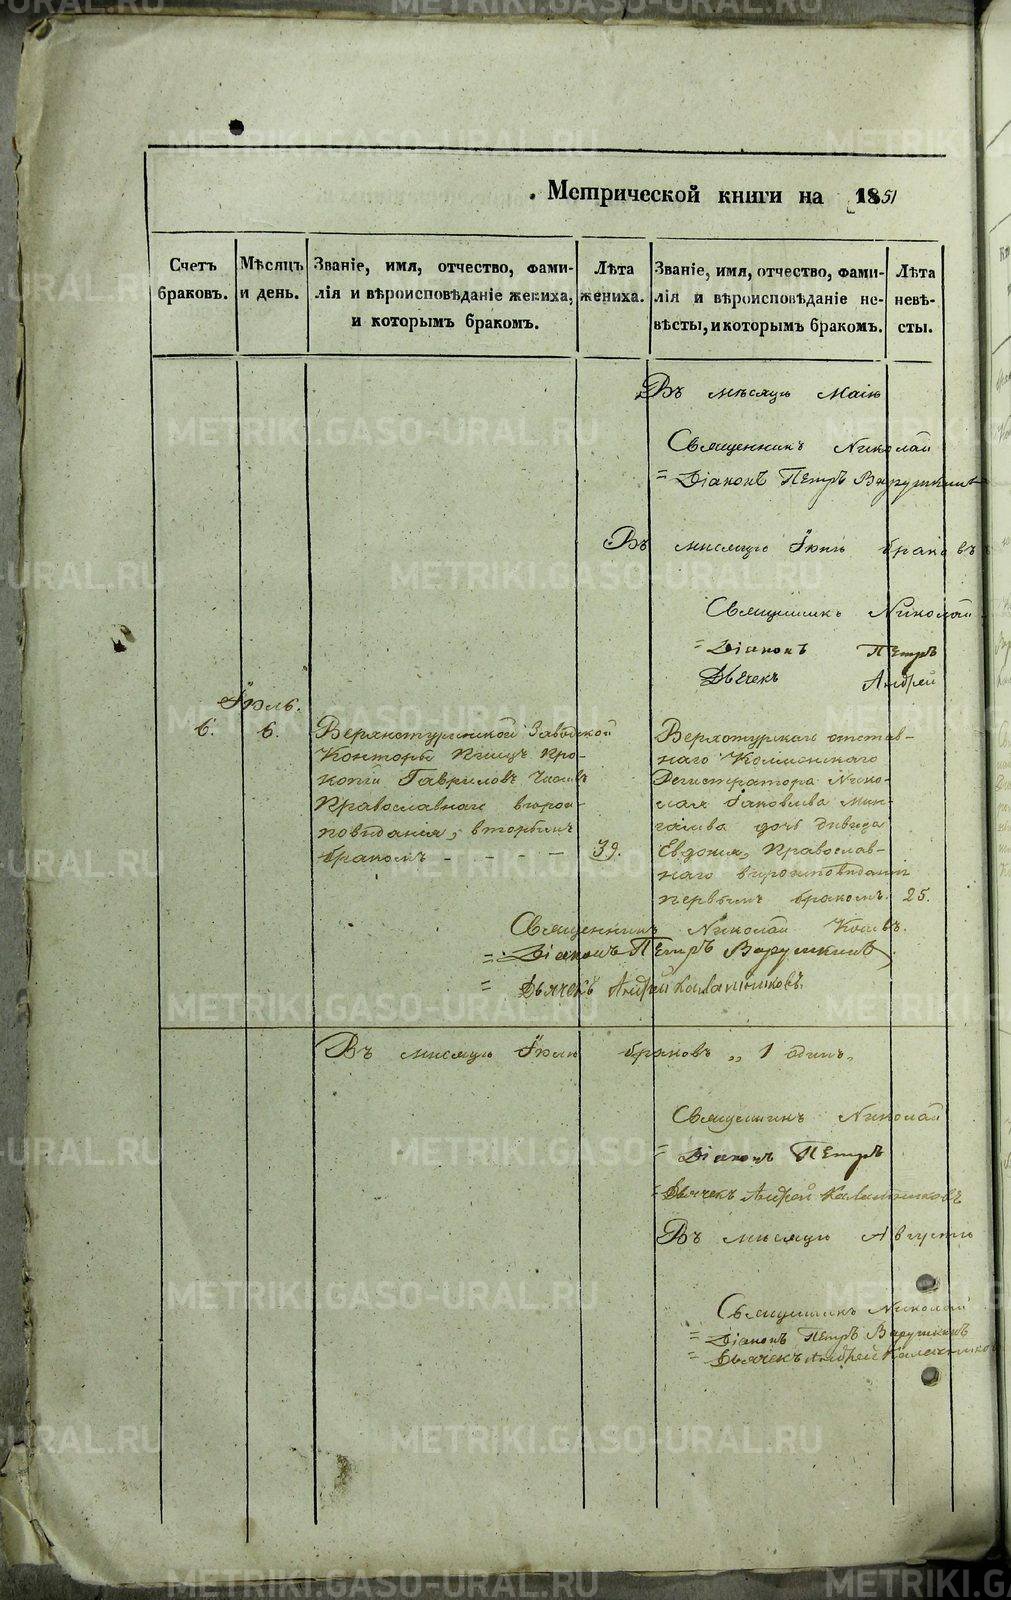 METRIKI.GASO-URAL.RU
Метрической книги на 1851
Счетъ браковъ.
Мѣсяцъ и день.
Званіе, имя, отчество, фами-
лія и вѣроисповѣданіе жениха,
и которымъ бракомъ.
Лѣта
жениха.
Званіе, имя, отчество, фами-
лія и вѣроисповѣданіе не-
вѣсты, и которымъ бракомъ.
Лѣта
невѣ-
сты.
Въ мѣсяцѣ Маіѣ
Священникъ Николай
Діаконъ Петръ
Въ мѣсяцѣ Іюнѣ браковъ
Священникъ Николай
Діаконъ Петръ
Дьячекъ Андрей
Іюль.
6. 6.
Верхнетуринской Заводской
Конторы Писецъ Про-
копій Гавриловъ
Православнаго вѣроис-
повѣданія, вторымъ
бракомъ - - - - - 39.
Верхотурскаго отстав-
наго
Регистратора Нико-
лая Іаковлева
дочь дѣвица
Евдокія, Православ-
наго вѣроисповѣданія
первымъ бракомъ. 25.
Священникъ Николай
= Діаконъ Петръ
= Дьячекъ Андрей Калашниковъ.
Въ мѣсяцѣ Іюлѣ браковъ „ 1 одинъ„
Священникъ Николай
= Діаконъ Петръ
= Дьячекъ Андрей Калашниковъ
Въ мѣсяцѣ Августѣ
Священникъ Николай
= Діаконъ Петръ
= Дьячекъ Андрей Калашниковъ